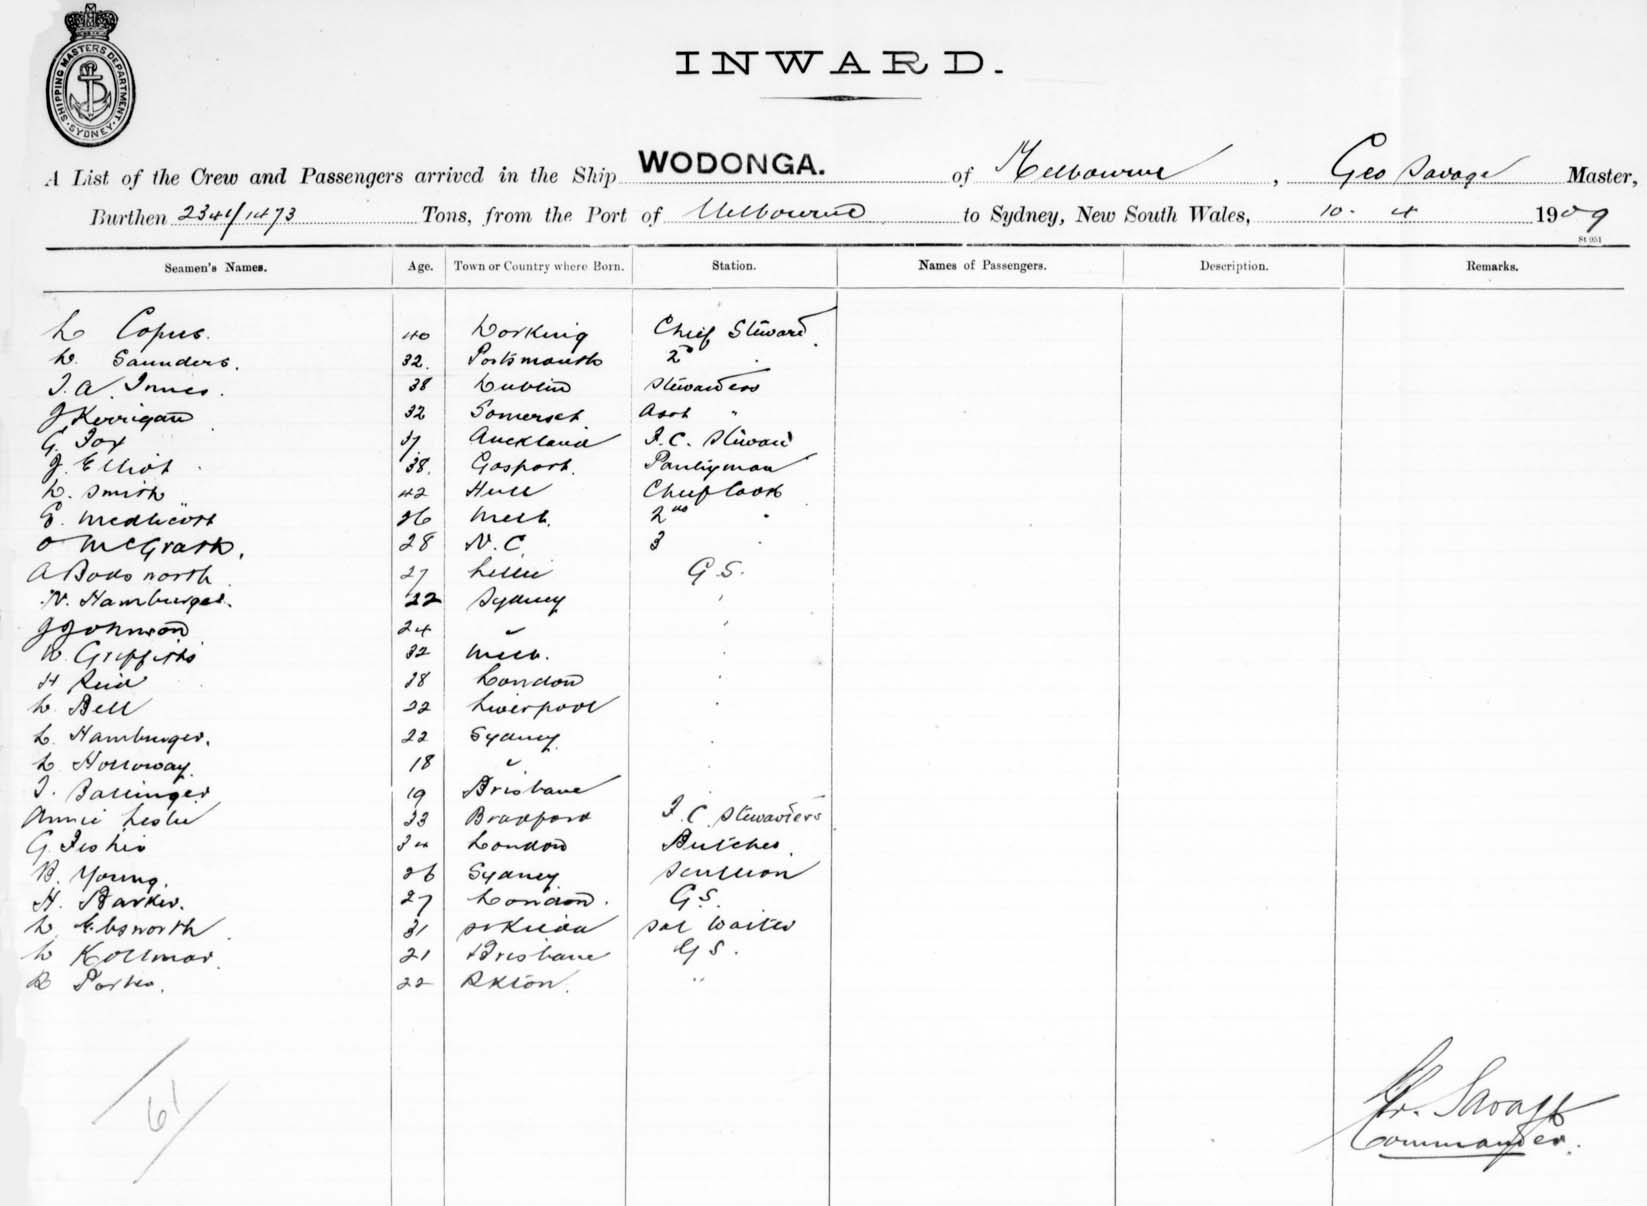 SHIPPING MASTERS DEPARTMENT. SYDNEY.
INWARD.
A List of the Crew and Passengers arrived in the Ship WODONGA. of Melbourne, Geo Savage Master,
Burthen 2341/1473 Tons, from the Port of Melbourne to Sydney, New South Wales, 10. 4 1909
St 951
Seamen's Names. Age. Town or Country where Born. Station. Names of Passengers. Description. Remarks.
L Copus. 40 Dorking Chief Steward
Saunders. 32. Portsmouth 2d
J. A. Innes. 38 Dublin Stewardess
J Kerrigan 32 Somerset Asst "
G. Fox 37 Auckland F.C. Steward
J. Elliot 38. Gosport. Pantryman
Smith 42 Hull Chief Cook
E. Medlicott 26 Melb. 2nd
McGrath. 28 N.C. 3
A Bodsworth 27 G.S.
N. Hamburger. 22 Sydney
J Johnson 24
W. Griffiths 32 Melb.
H Reid 28 London
L. Bell 22 Liverpool
L. Hamburger. 22 Sydney
L Holloway. 18
Ballinger 19 Brisbane
Annie Leslie 33 Bradford F.C. Stewardess
G. Fisher London Butcher.
B. Young. 26 Sydney Scullion
H. Barker. 27 London. G.S.
L. Ebsworth 31 St Kilda Sal Waiter
L Kollmar. 21 Brisbane G S.
R Porter. 22 "
61
Savage
Commander.